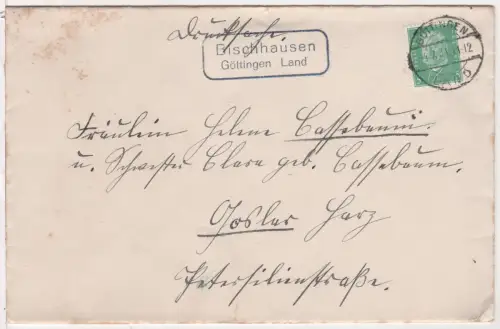 Drucksache.
Bischhausen
Göttingen Land
Fräulein Helene Cassebaum.
u. Schwester Clara geb. Cassebaum.
Goslar Harz
Petersilienstraße.